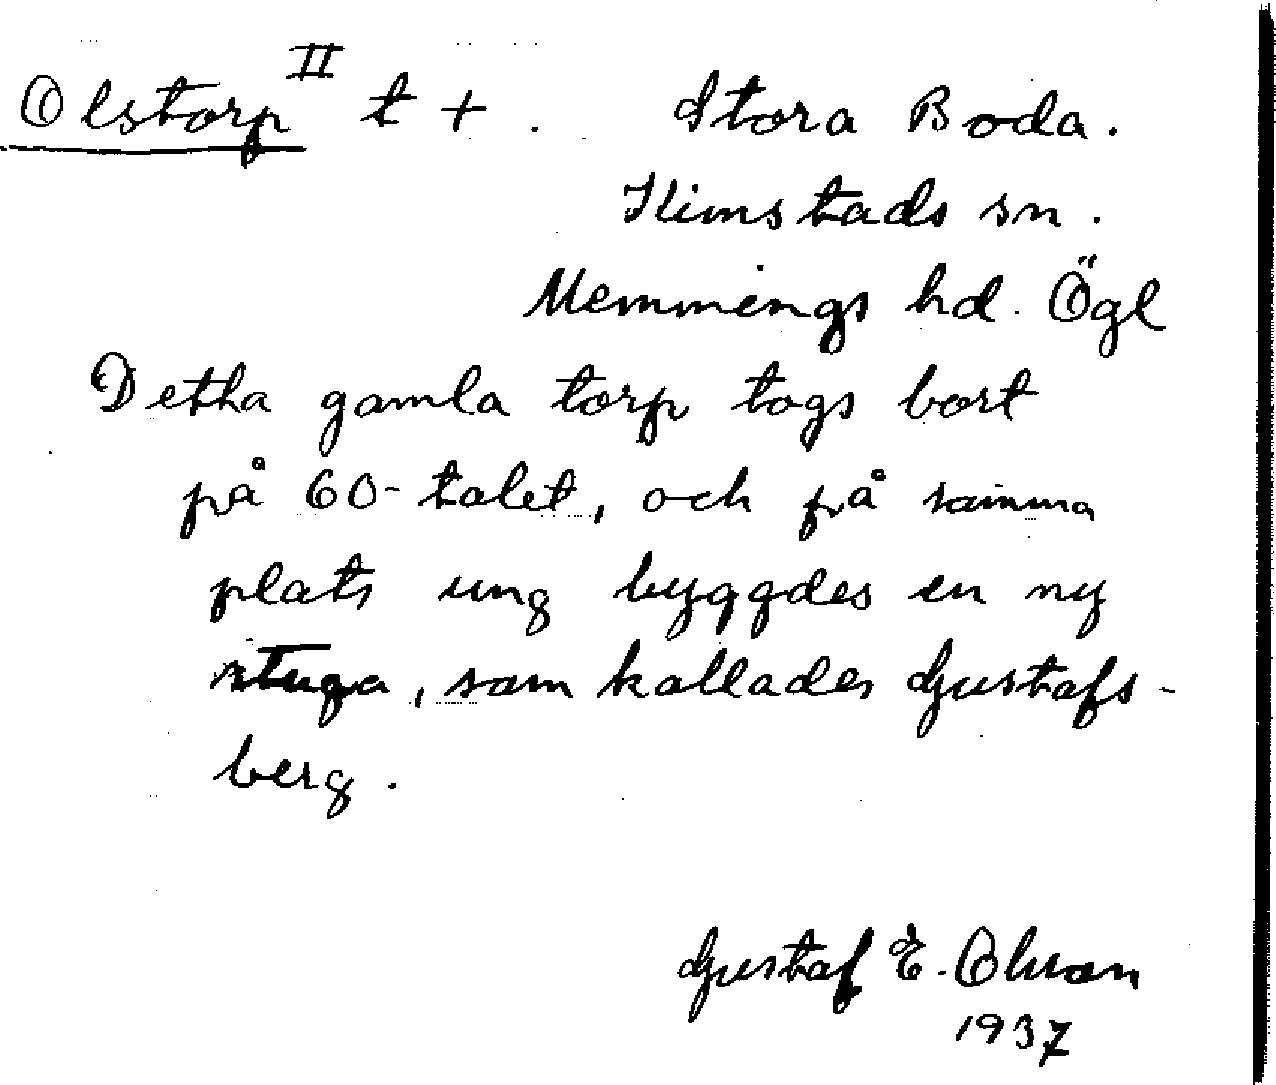 Olstorp II t + . Stora Boda.
Kimstads sn.
Memmings hd. Ögl
Detta gamla torp togs bort
på 60-talet, och på samma
plats ung byggdes en ny
stuga, som kallades Gustafs-
berg.
Gustaf E. Olsson
1937